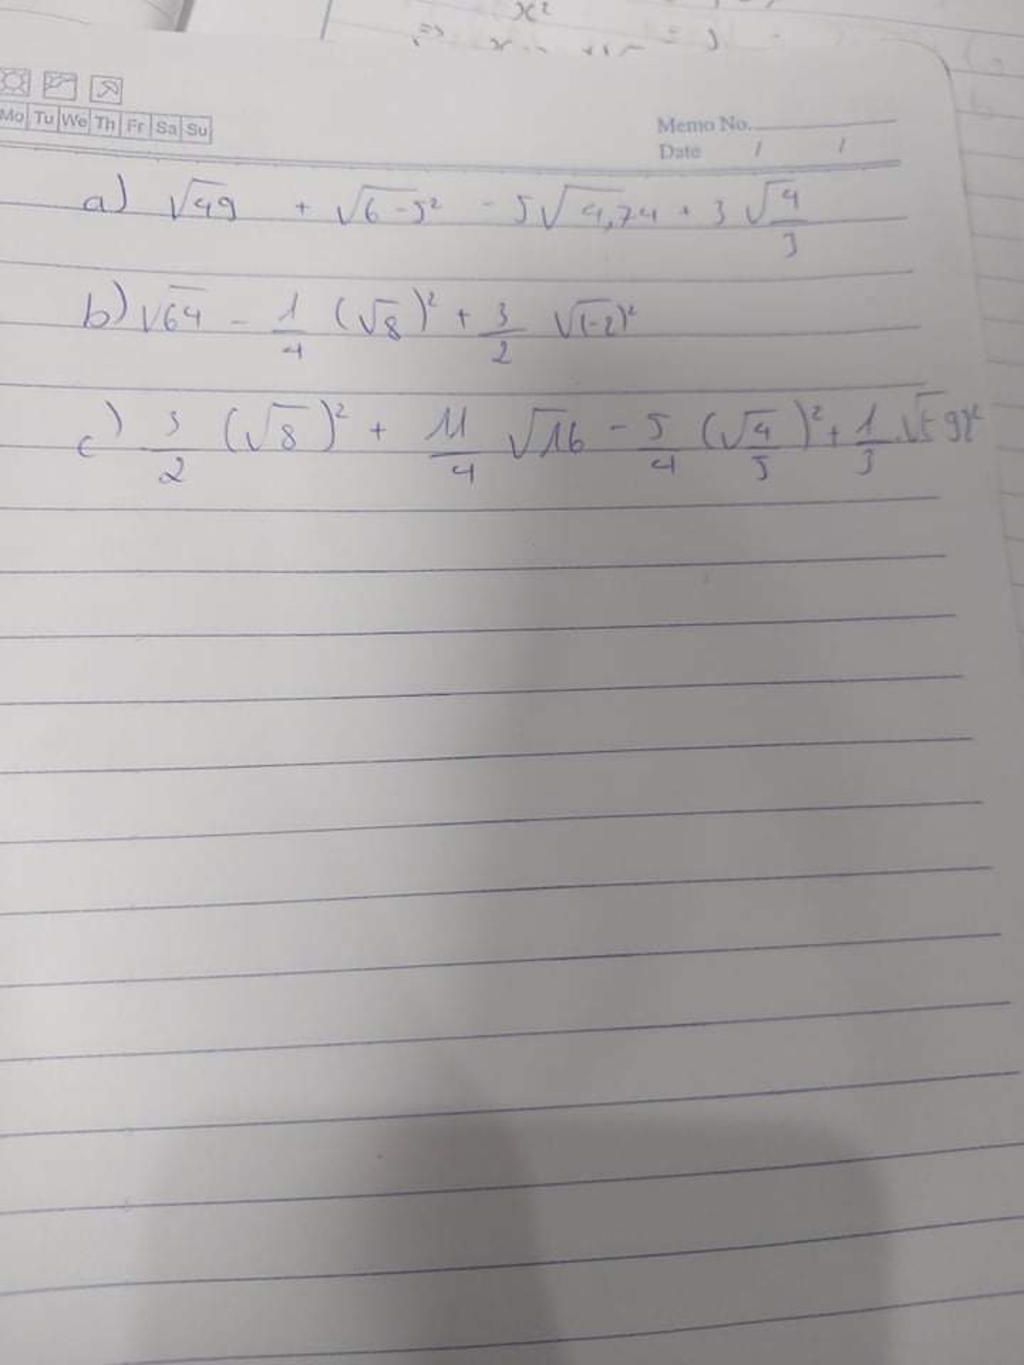 x²
Mo Tu We Th Fr Sa Su
Memo No.
Date / /
a) √49 + √6-5² - 5√4,74 + 3 √4/3
b) √64 - 1/4 (√8)² + 3/2 √(-2)²
c) 3/2 (√8)² + 11/4 √16 - 5/4 (√4/5)² + 1/3 √(-9)²